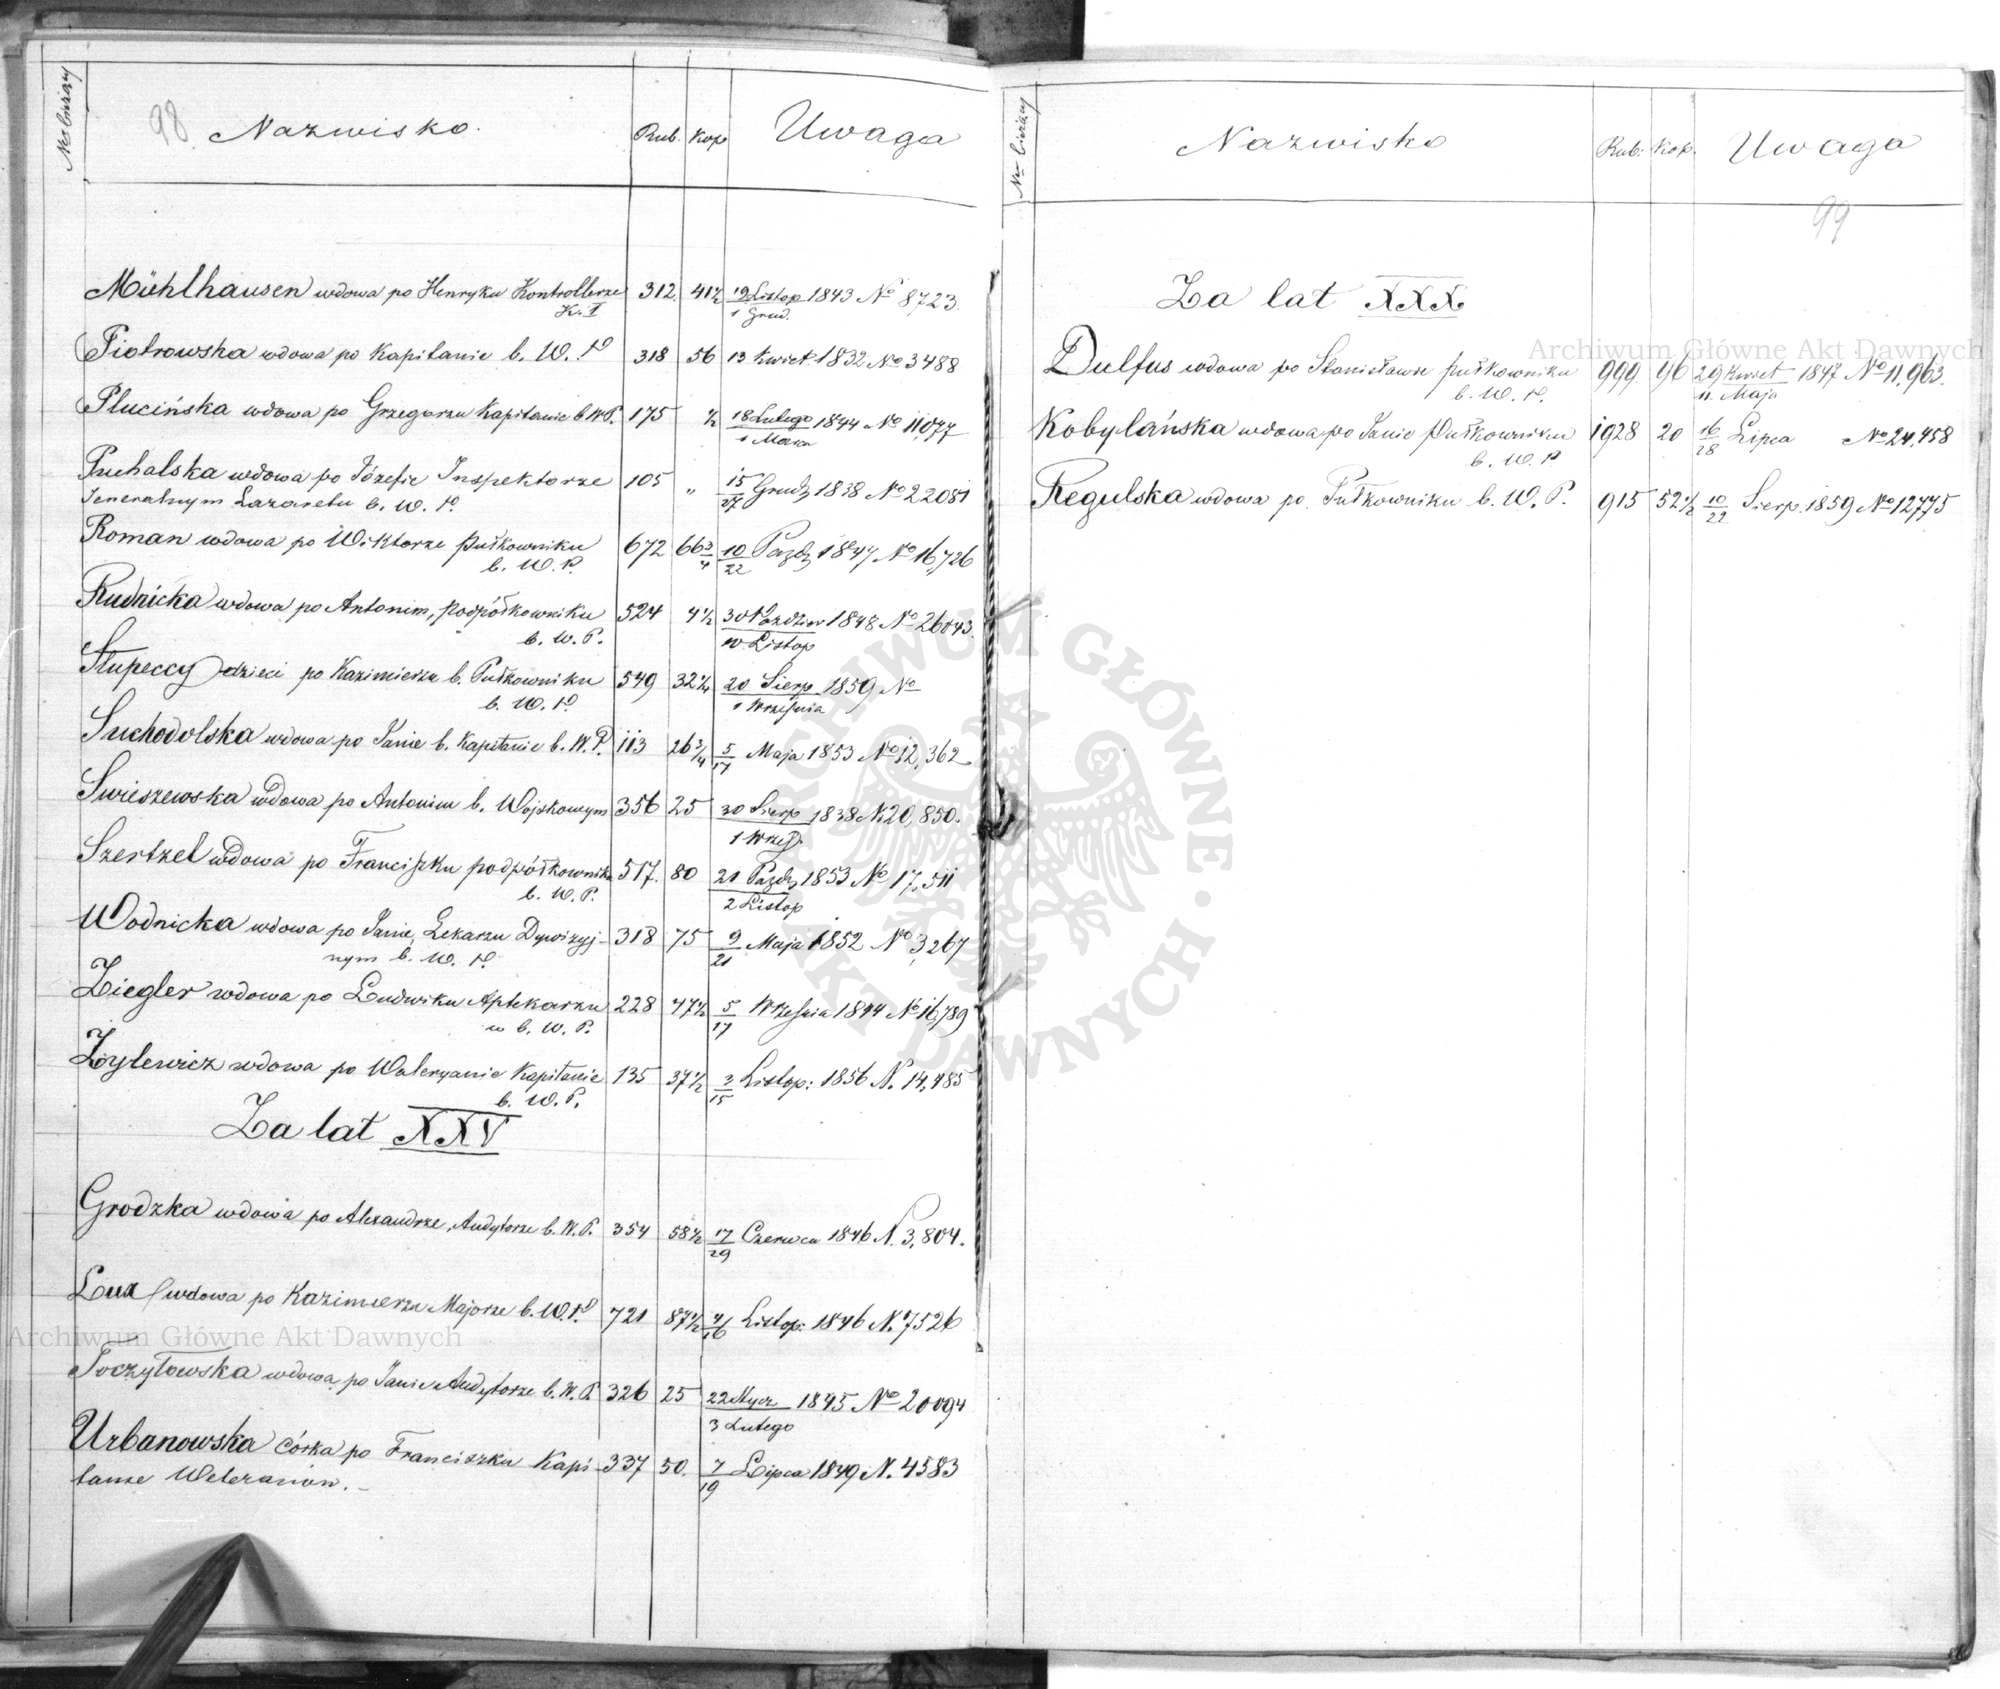 Nro bieżący
98.
Nazwisko.
Rub.
Kop
Uwaga
Mühlhausen wdowa po Henryku Kontrollerze 312. 41½ 19 Listop 1843 No 8723.
K. I 1 Grud.
Piotrowska wdowa po Kapitanie b. W. P 318 56 13 Kwiet 1832 No 3488
Plucińska wdowa po Grzegorzu Kapitanie b W P. 175 ½ 18 Lutego 1844 No 11,077
1 Marca
Puchalska wdowa po Józefie Inspektorze 105 „ 15/27 Grudz 1838 No 22081
Jeneralnym Lazaretu b. W. P.
Roman wdowa po Wiktorze pułkowniku 672 66¾ 10/22 Pazdz 1847 No 16,726
b. W. P.
Rudnicka wdowa po Antonim, podpółkowniku 524 4½ 30 Pazdzier 1848 No 26043.
b. W. P. 10 Listop
Słupeccy dzieci po Kazimierzu b. Pułkowniku 549 32¼ 20 Sierp 1859 No
b. W. P. 1 Września
Suchodolska wdowa po Janie b. Kapitanie b. W. P. 113 26¾ 5/17 Maja 1853 No 12,362
Swieszewska wdowa po Antonim b. Wojskowym 356 25 20 Sierp 1838 N 20,850.
1 Wrześ.
Szertzel wdowa po Franciszku podpółkowniku 517. 80 21 Pazdz 1853 No 17,511
b. W. P. 2 Listop
Wodnicka wdowa po Janie, Lekarzu Dywizyj- 318 75 9/21 Maja 1852 No 3,267
nym b. W. P.
Ziegler wdowa po Ludwiku Aptekarzu 228 47½ 5/17 Września 1844 No 16,789
w b. W. P.
Zoylewicz wdowa po Waleryanie Kapitanie 135 37½ 3/15 Listop: 1856 N. 14,485
b. W. P.
Za lat XXV
Grodzka wdowa po Alexandrze, Audytorze b. W. P. 354 58½ 17/29 Czerwca 1846 N. 3,804.
Lux wdowa po Kazimierzu Majorze b. W. P. 721 87½ 4/16 Listop: 1846 N. 7526
Toczyłowska wdowa po Janie Audytorze b. W. P. 326 25 22 Stycz 1845 No 20094
3 Lutego
Urbanowska córka po Franciszku Kapi- 337 50. 7/19 Lipca 1849 N. 4583
tanie Weteranów.
Nro bieżący
Nazwisko
Rub:
Kop.
Uwaga
99
Za lat XXX.
Dulfus wdowa po Stanisławie pułkowniku 999 96 29 Kwiet 1847 No 11,963.
b. W. P. 11. Maja
Kobylańska wdowa po Janie Pułkowniku 1928 20 16/28 Lipca No 24,458
b. W. P
Regulska wdowa po Pułkowniku b. W. P. 915 52½ 10/22 Sierp. 1859 No 12775
Archiwum Główne Akt Dawnych
Archiwum Główne Akt Dawnych
ARCHIWUM GŁÓWNE · AKT DAWNYCH ·